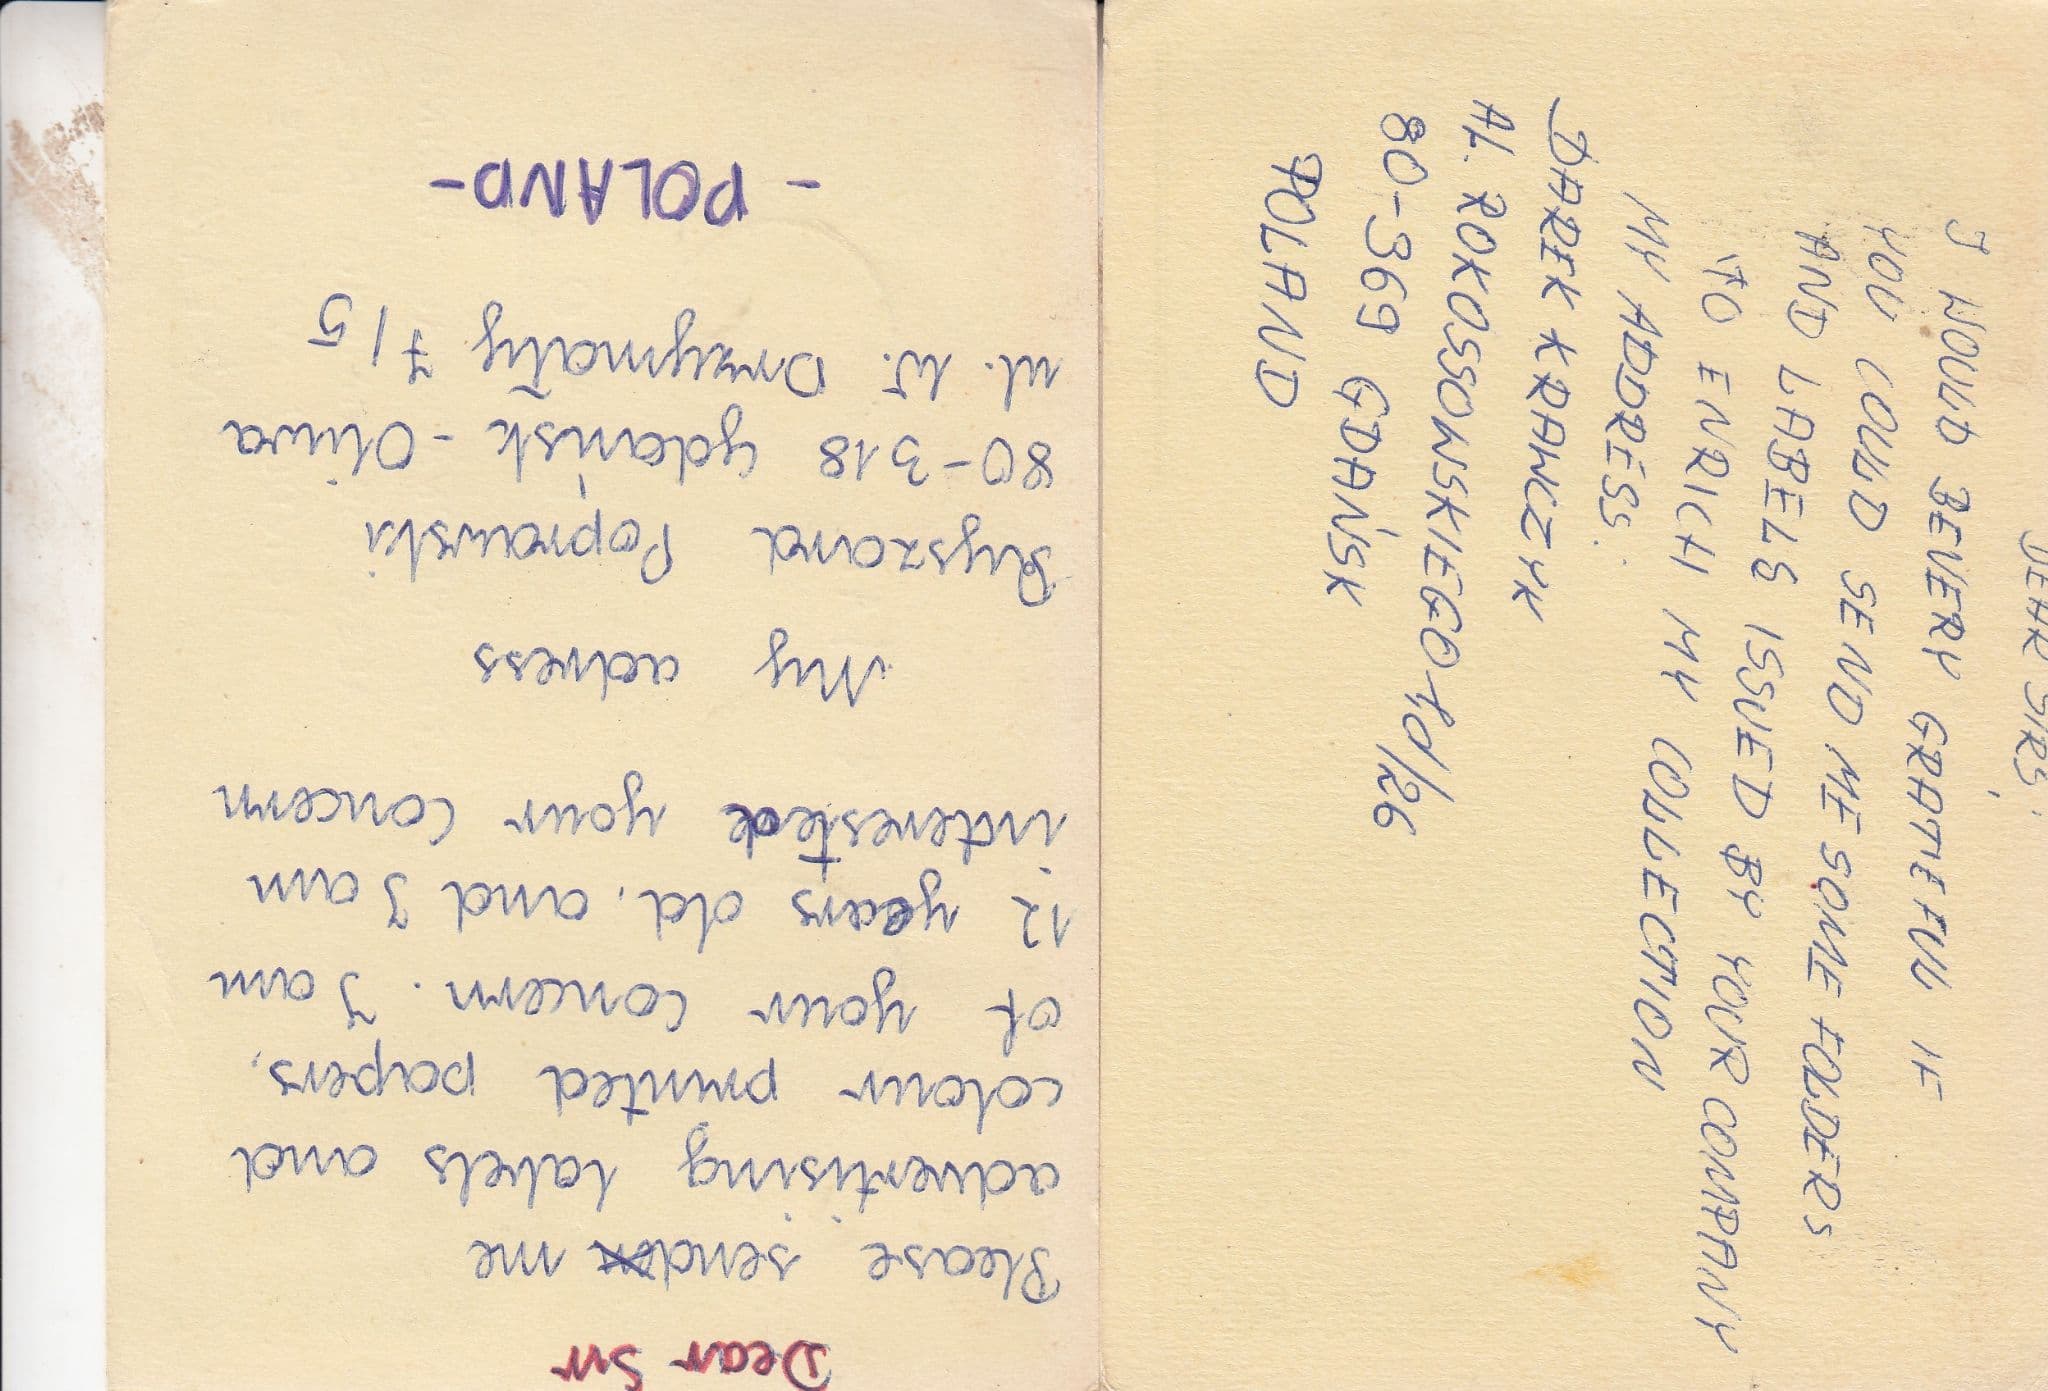 Dear Sir
Please send me
advertising labels and
colour printed papers,
of your concern. J am
12 years old. and J am
interested your concern
My adress
Ryszard Poprawski
80-318 Gdańsk - Oliwa
ul. W. Drzymały 7/5
- POLAND -
DEAR SIRS,
J WOULD BEVERY GRATIEFUL IF
YOU COULD SEND ME SOME FOLDERS
AND LABELS ISSUED BY YOUR COMPANY
TO ENRICH MY COLLECTION
MY ADDRESS:
DAREK KRAWCZYK
AL. ROKOSSOWSKIEGO 1d/26
80-369 GDAŃSK
POLAND